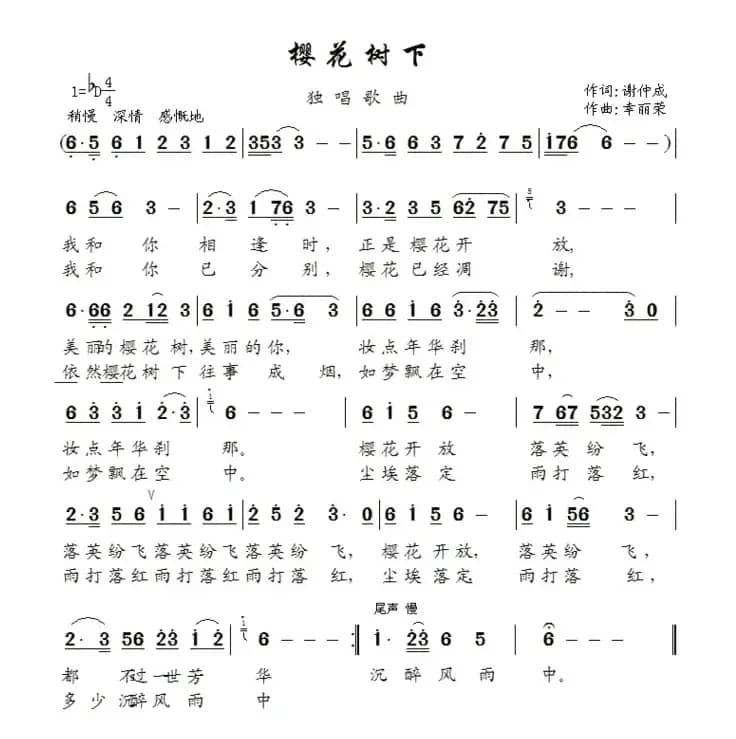 樱花树下
独唱歌曲
1=♭D 4/4
作词:谢仲成
作曲:幸丽荣
稍慢 深情 感慨地
(6·5 6 1 2 3 1 2 | 353 3 - - | 5·6 6 3 7 2 7 5 | 176 6 - - )
6 5 6 3 - | 2·3 1 76 3 - | 3·2 3 5 62 75 | 3 - - - |
我和你相逢时,正是樱花开放,
我和你已分别,樱花已经凋谢,
6·66 2 12 3 | 6 1 6 5·6 3 | 6 6 1 6 3·23 | 2 - - 3 | 3 0 |
美丽的樱花树,美丽的你,妆点年华刹那,
依然樱花树下往事成烟,如梦飘在空中,
6 3 3 1 2·3 | 6 - - - | 6 1 6 5 - | 7 67 5532 3 - |
妆点年华刹那。樱花开放落英纷飞,
如梦飘在空中。尘埃落定雨打落红,
2·3 5 6 V 1 1 6 1 | 2 5 2 3·0 | 6 1 5 6 - | 6 1 56 3 - |
落英纷飞落英纷飞落英纷飞,樱花开放,落英纷飞,
雨打落红雨打落红雨打落红,尘埃落定,雨打落红,
尾声 慢
2·3 56 23 1 | 6 - - - :| 1·23 6 5 | 6 - - - ‖
都不过一世芳华沉醉风雨中。
多少沉醉风雨中